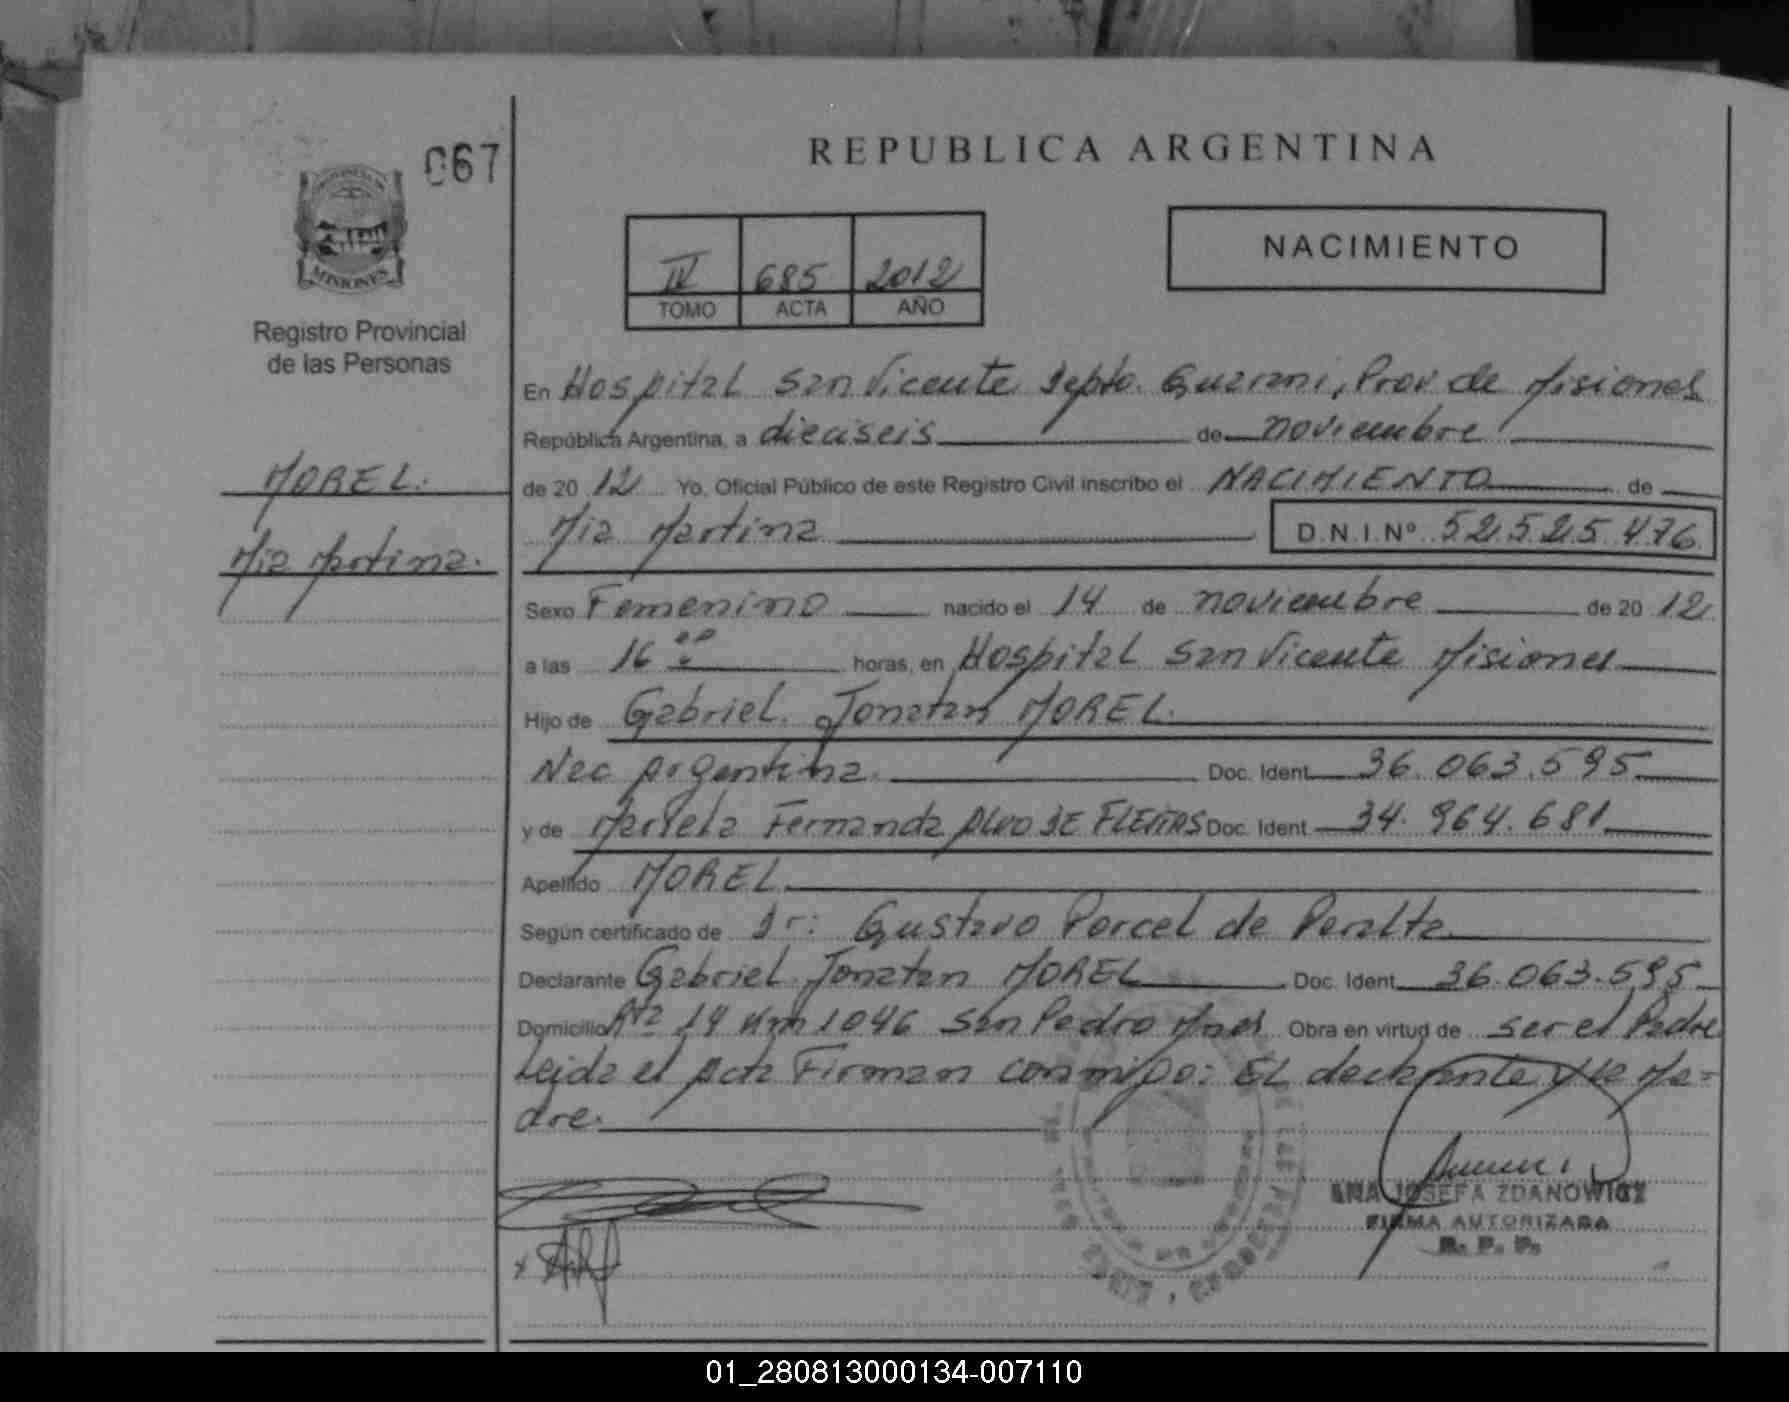 067
REPUBLICA ARGENTINA
MISIONES
Registro Provincial
de las Personas
IV 685 2012
TOMO ACTA AÑO
NACIMIENTO
En Hospital San Vicente Depto. Guarani, Prov de Misiones
República Argentina, a dieciseis de noviembre
MOREL.
de 20 12 Yo, Oficial Público de este Registro Civil inscribo el NACIMIENTO de
Mia Martina.
Mia Martina D.N.I.Nº 52.525.476
Sexo Femenino nacido el 14 de noviembre de 20 12
a las 16 00 horas, en Hospital San Vicente Misiones
Hijo de Gabriel Jonatan MOREL
Nac Argentina. Doc. Ident. 36.063.595
y de Mariela Fernanda ALVO DE FLEITAS Doc. Ident. 34.964.681
Apellido MOREL
Según certificado de Dr: Gustavo Porcel de Peralta
Declarante Gabriel Jonatan MOREL Doc. Ident. 36.063.595
Domicilio Rta 14 Km 1046 San Pedro Mnes Obra en virtud de ser el Padre
Leida el Acta Firman conmigo: EL declarante y la Ma=
dre.
ANA JOSEFA ZDANOWICZ
FIRMA AUTORIZADA
R. P. P.
01_280813000134-007110